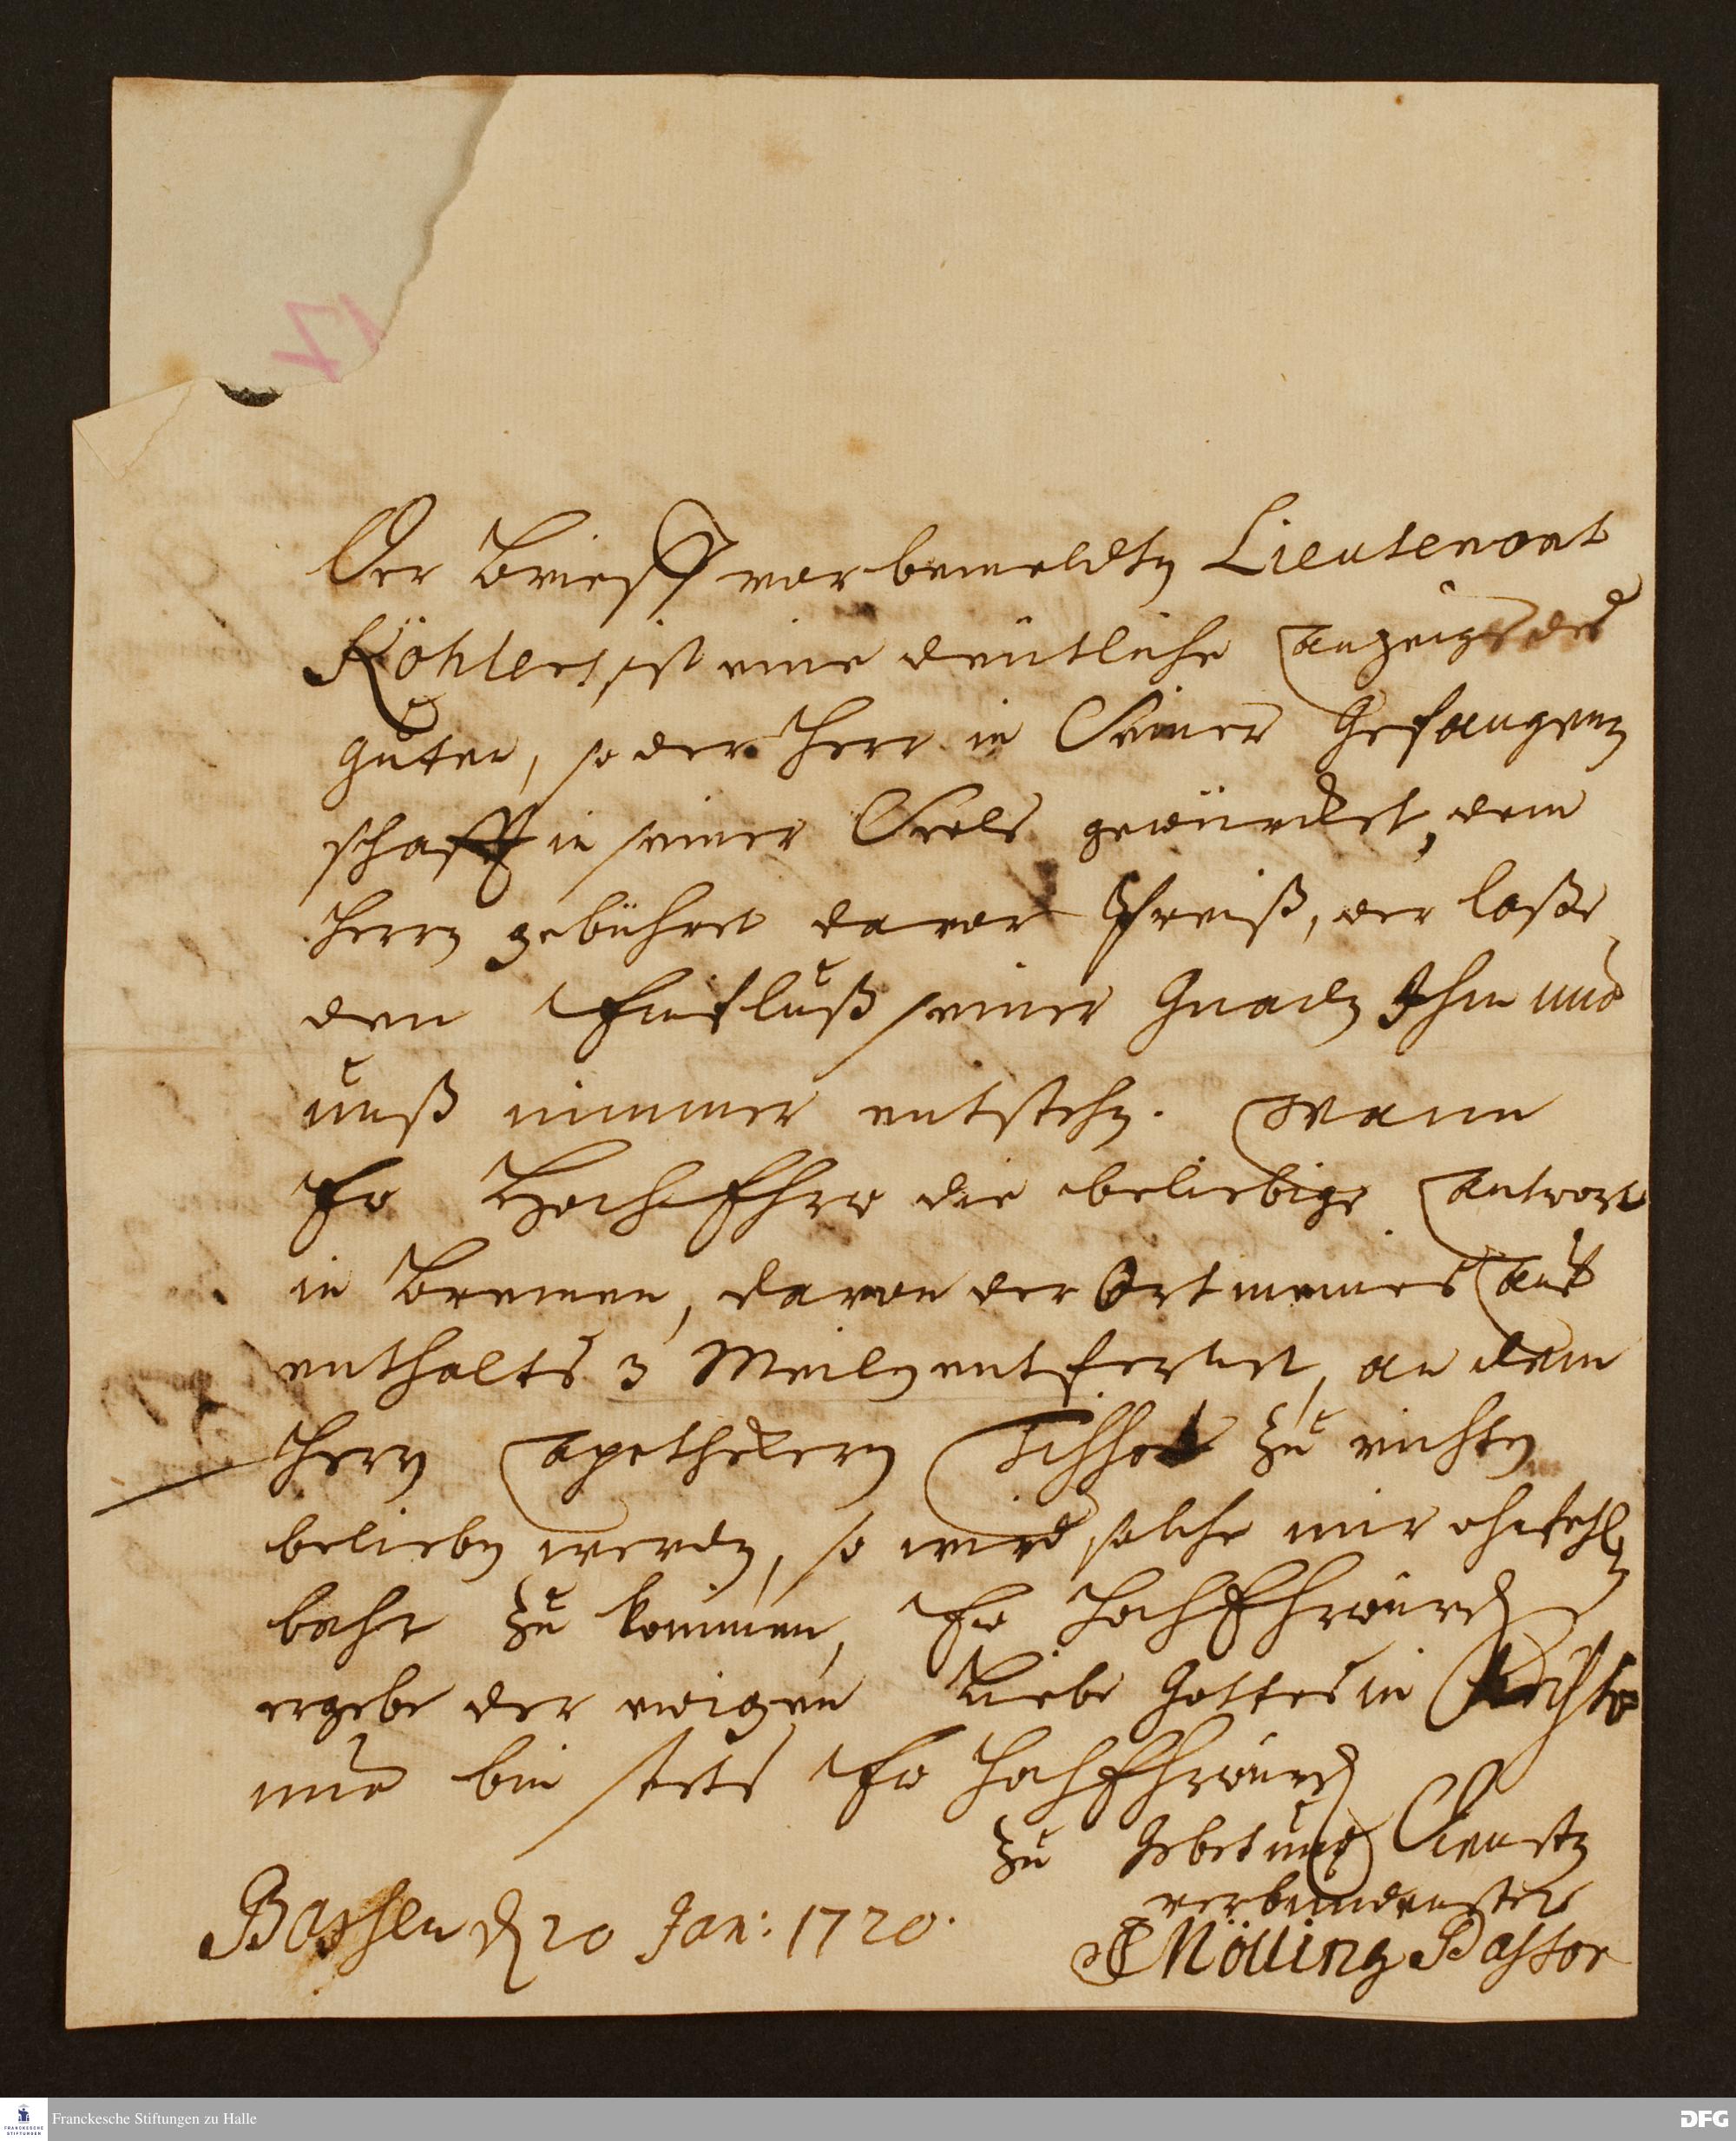 Der Brieff vorbemeldten Lieutenant
Köhlers, ist eine deütliche anzeige des
guten, so der Herr in Seiner Gefangen
schafft in seiner Seele gewürcket, dem
Herrn gebühret davor Preiß, der laße
den Einfluß seiner Gnaden Ihm und
unß nimmer entstehen. Wann
Ew HochEhrw die beliebige antwort
in Bremen, davon der Ort meines auf
enthalts 3 Meilen entfernet, an dem
Herrn Apothekern zu richten
belieben werden, so wird solche mir ohnfehl
bahr zu kommen, Ew HochEhrwürd
ergebe der ewigen Liebe Gottes in Christo
und bin stets Ew HochEhrwürd
zu Gebet und Diensten
verbundenster
Mölling Pastor
Bassen d 20 Jan: 1720.
17
Franckesche Stiftungen zu Halle
FRANCKESCHE STIFTUNGEN
DFG